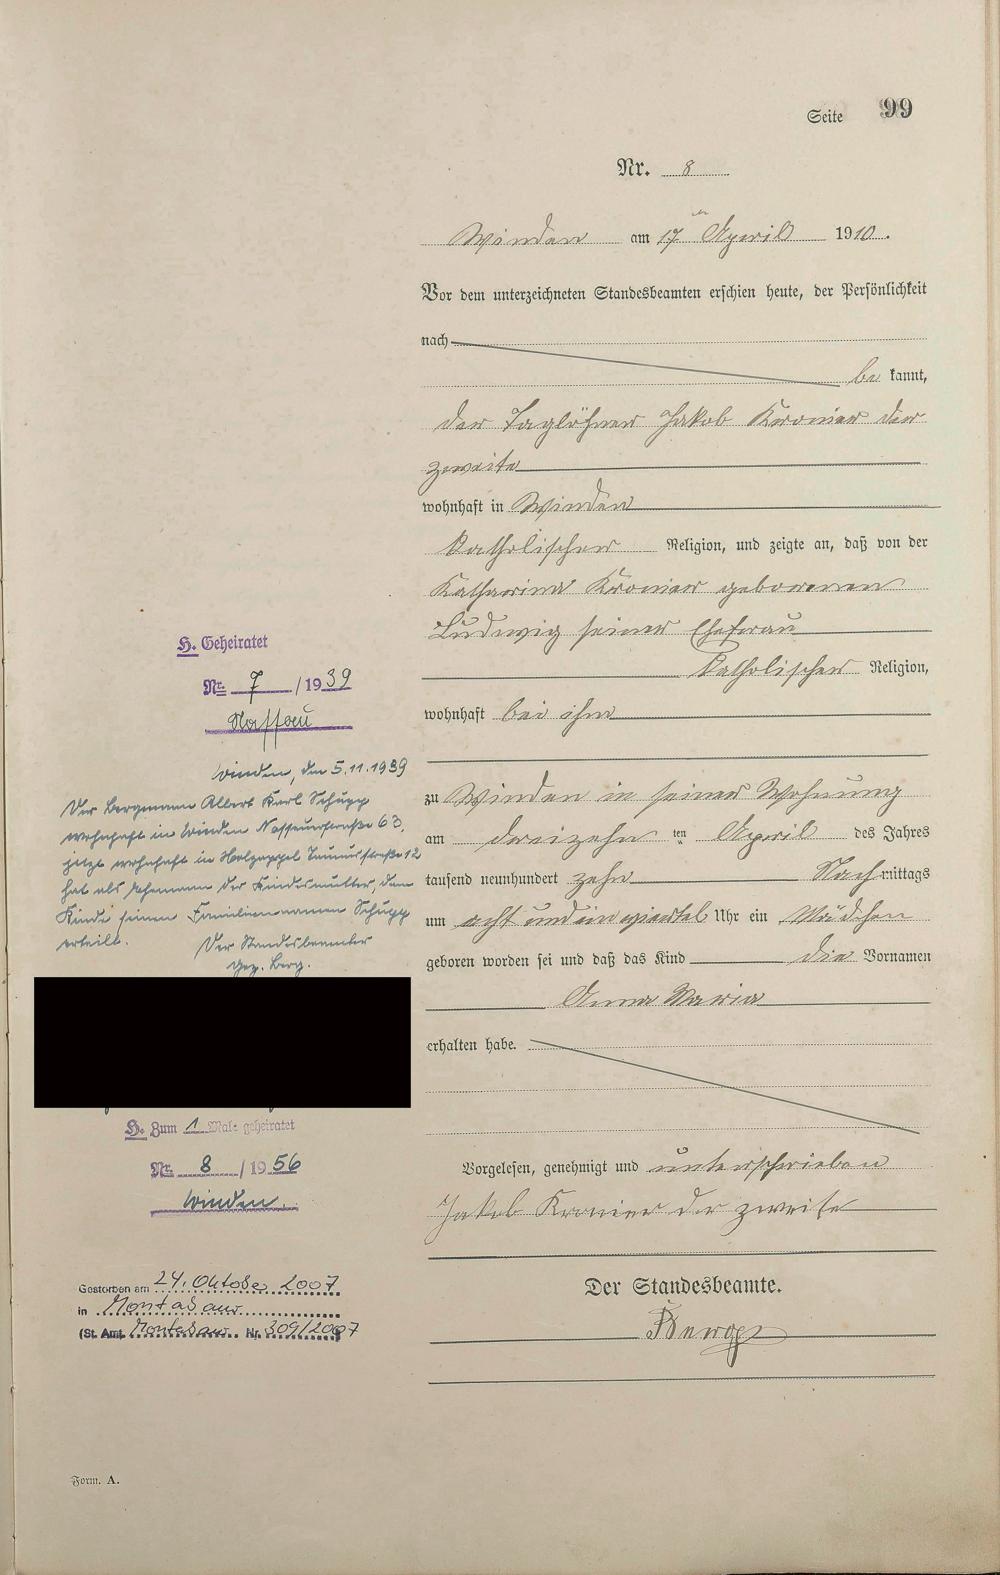 Seite 99
Nr. 8
Winden am 17ten April 1910.
Vor dem unterzeichneten Standesbeamten erschien heute, der Persönlichkeit
nach
be kannt,
der Taglöhner Jakob Kronier der
zweite
wohnhaft in Winden
katholischer Religion, und zeigte an, daß von der
Katharina Kronier geborenen
Ludwig seiner Ehefrau
katholischer Religion,
wohnhaft bei ihm
zu Winden in seiner Wohnung
am dreizehn ten April des Jahres
tausend neunhundert zehn Nachmittags
um acht und ein viertel Uhr ein Mädchen
geboren worden sei und daß das Kind die Vornamen
Anna Maria
erhalten habe.
Vorgelesen, genehmigt und unterschrieben
Jakob Kronier der zweite
Der Standesbeamte.
H. Geheiratet
Nr. 7 / 1939
Nassau
Winden, den 5.11.1939
Der Bergmann Albert Karl Schupp
wohnhaft in Winden Nassauerstraße 63,
jetzt wohnhaft in Holzappel Taunusstraße 12
hat als Ehemann der Kindesmutter, dem
Kinde seinen Familiennamen Schupp
erteilt. Der Standesbeamte
gez. Berg.
H. Zum 1 Mal: geheiratet
Nr. 8 / 1956
Winden.
Gestorben am 24. Oktober 2007
in Montabaur
(St. Amt. Montabaur Nr. 309/2007
Form. A.